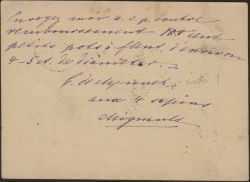 Envoyez moi s.v.p. contre
remboursement 100 cent
petits pots à fleurs d'environ
4-5 ct. de diamètre.
aux 4 sapins